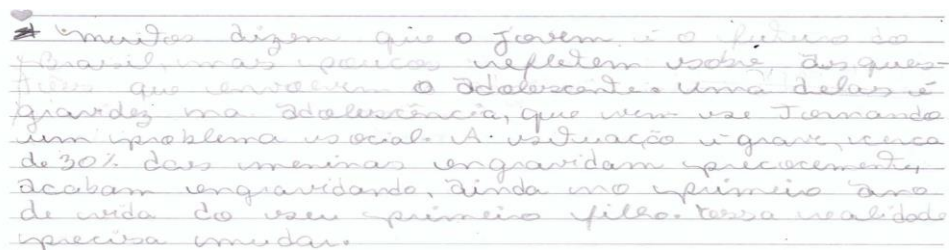 muitos dizem que o Jovem é o futuro do
Brasil, mas poucos refletem sobre as ques-
tões que envolvem o adolescente. Uma delas é
gravidez na adolescência, que vem se Tornando
um problema social. A situação é grave, cerca
de 30% das meninas engravidam precocemente,
acabam engravidando, ainda no primeiro ano
de vida do seu primeiro filho. Essa realidade
precisa mudar.